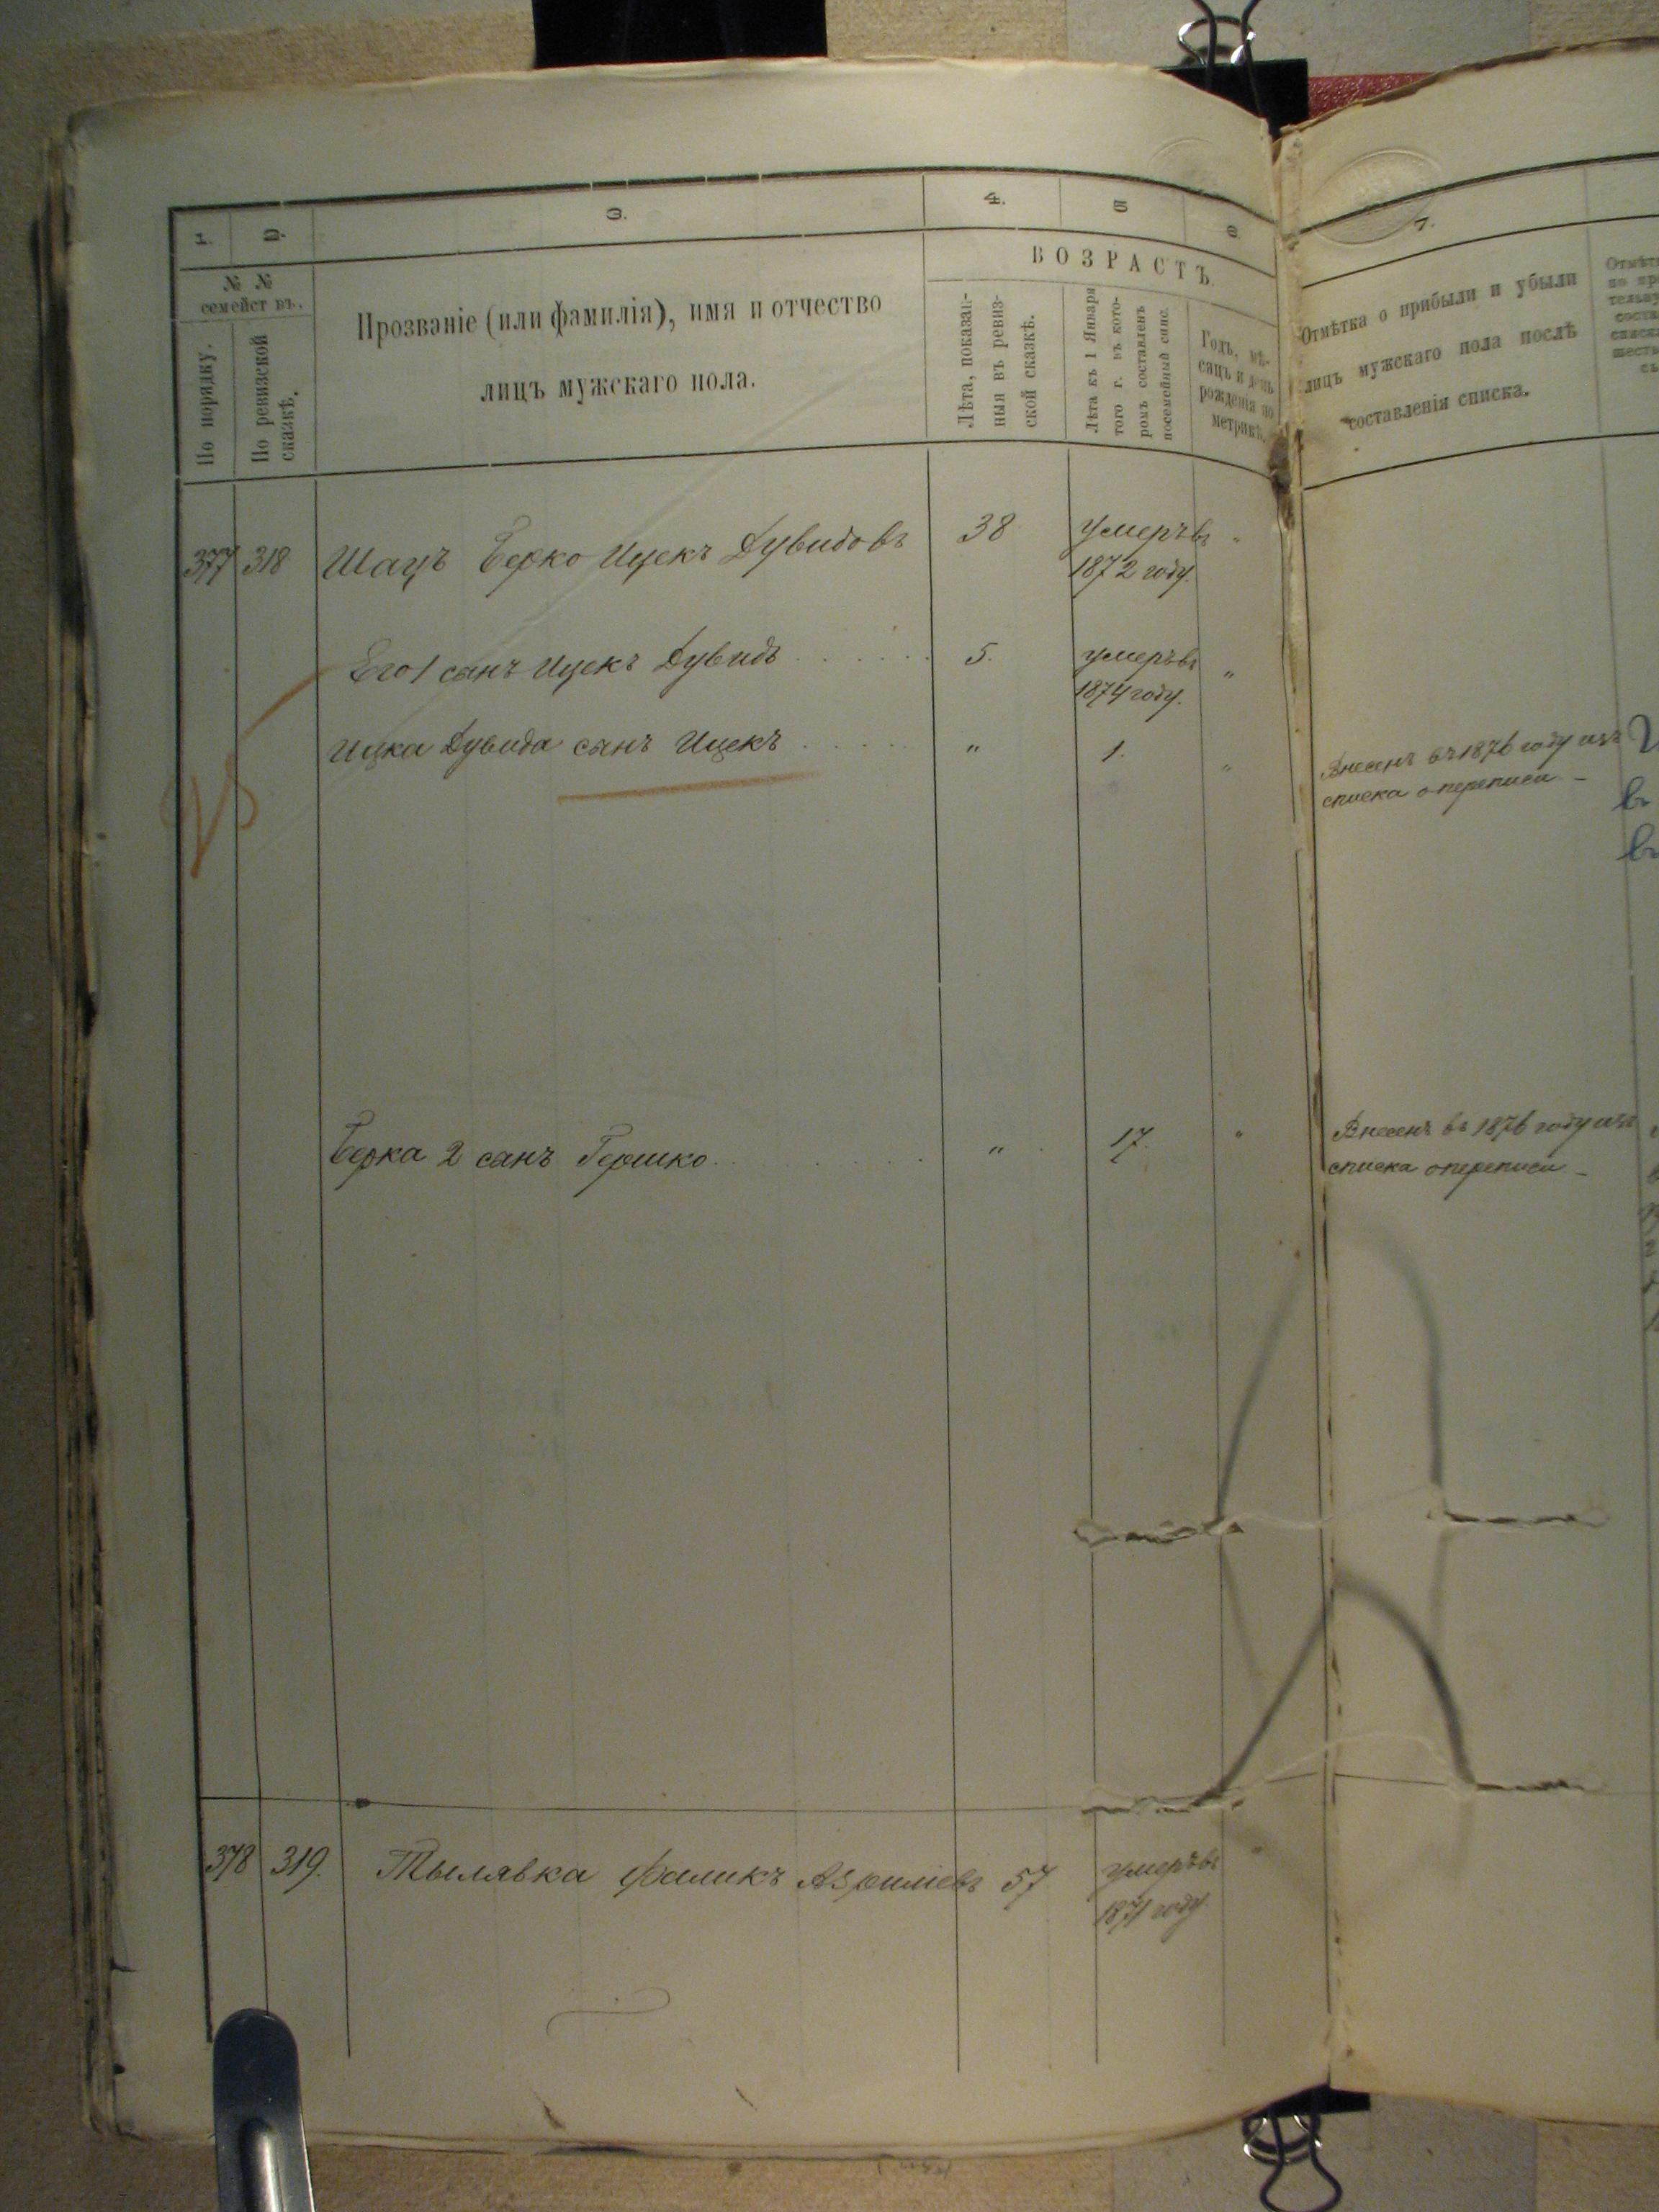 1.
2.
3.
4.
5
6
7.
№ №
семействъ.
По порядку.
По ревизской
сказкѣ.
Прозваніе (или фамилія), имя и отчество
лицъ мужскаго пола.
ВОЗРАСТЪ.
Лѣта, показан-
ныя въ ревиз-
ской сказкѣ.
Лѣта къ 1 Января
того г. въ кото-
ромъ составленъ
посемейный спис.
Годъ, мѣ-
сяцъ и день
рожденія по
метрикѣ.
Отмѣтка о прибыли и убыли
лицъ мужскаго пола послѣ
составленія списка.
377 318 Шацъ Берко Ицекъ Дувидовъ 38 умеръ въ "
1872 году.
Его 1 сынъ Ицекъ Дувидъ 5. умеръ въ "
1874 году.
Ицка Дувида сынъ Ицекъ " 1. " Внесенъ въ 1876 году изъ
списка о переписи
Берка 2 сынъ Гершко " 17. " Внесенъ въ 1876 году изъ
списка о переписи
378 319. Тылявка Фаликъ Азрилiевъ 57 умеръ въ "
1871 году.